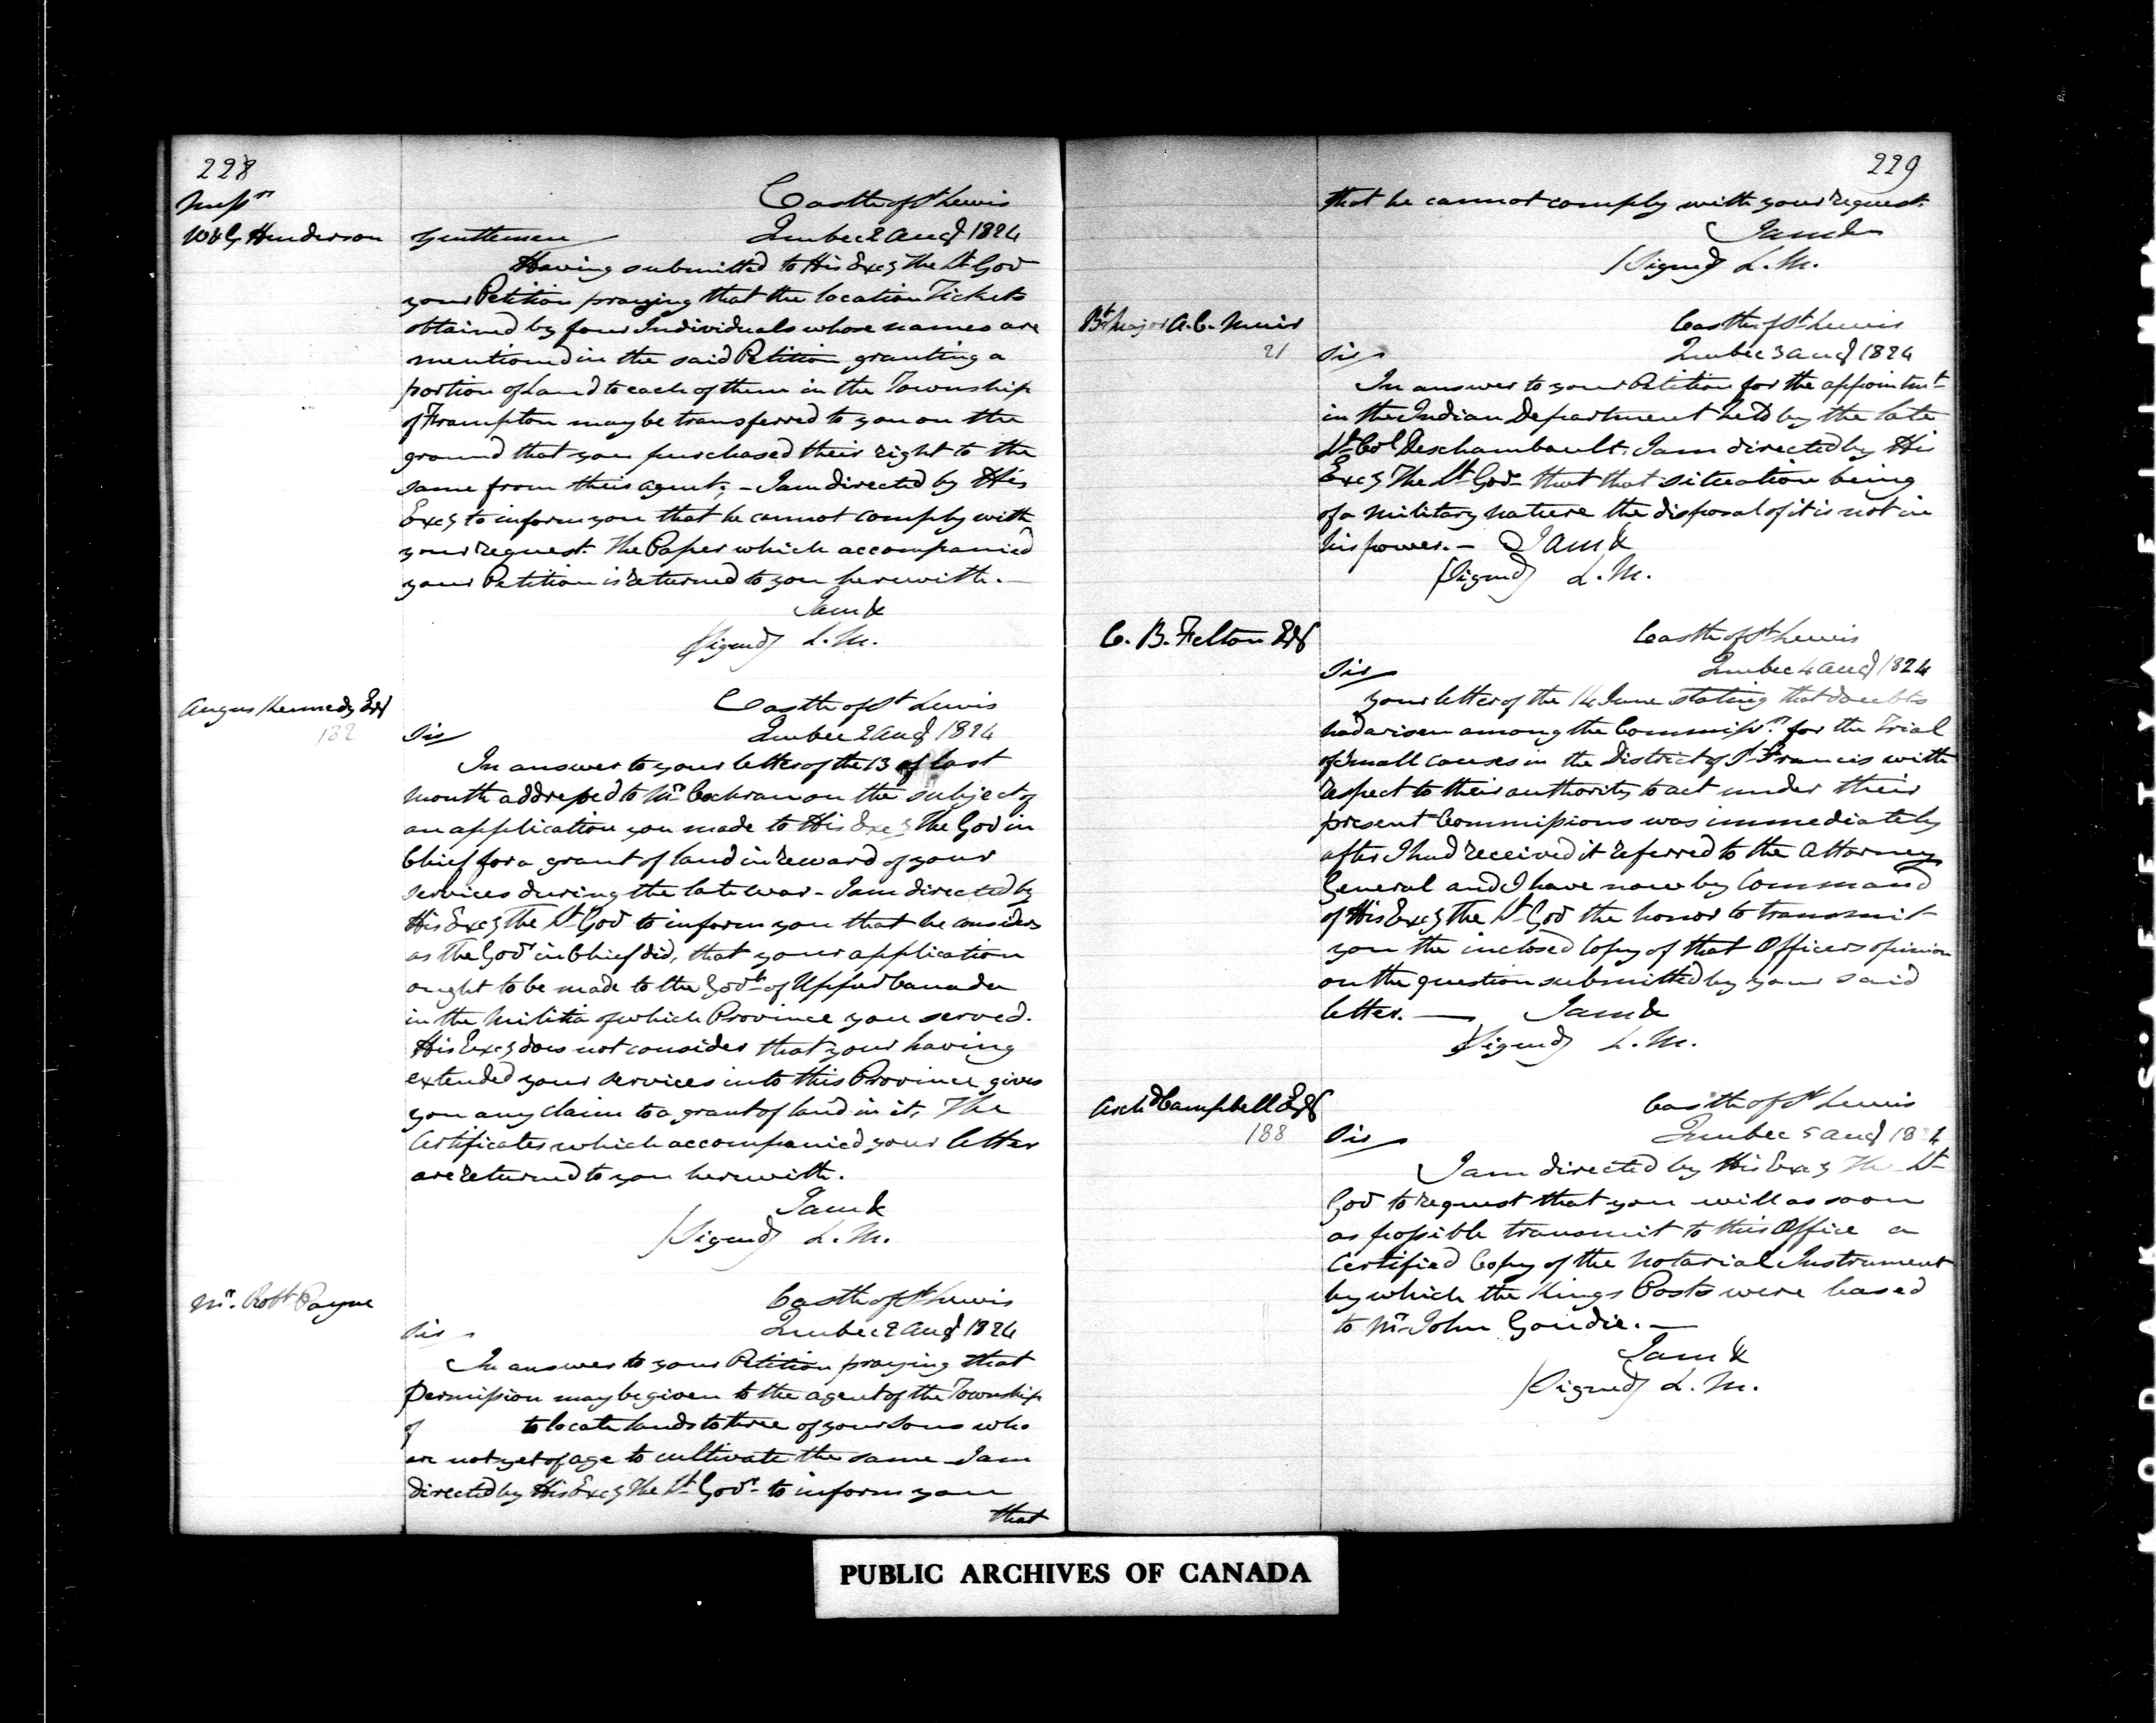 228
Messrs
W & G Henderson
Castle of St Lewis
Gentlemen Quebec 2 Augt 1824
Having submitted to His Excy The Lt Govr
your Petition praying that the location Tickets
obtained by four Individuals whose names are
mentioned in the said Petition granting a
portion of Land to each of them in the Township
of Frampton may be transferred to you on the
ground that you purchased their right to the
same from their agent; – I am directed by His
Excy to inform you that he cannot comply with
your request. The Paper which accompanied
your Petition is returned to you herewith. –
I am &
(Signed) L. M.
Angus Kennedy Esq
182
Castle of St Lewis
Sir Quebec 2 Augt 1824
In answer to your letter of the 13 of last
month addressed to Mr Cochran on the subject of
an application you made to His Excy The Govr in
Chief for a grant of land in reward of your
services during the late war – I am directed by
His Excy The Lt Govr to inform you that he considers
as The Govr in Chief did, that your application
ought to be made to the Govt of Upper Canada
in the Militia of which Province you served.
His Excy does not consider that your having
extended your services into this Province gives
you any claim to a grant of land in it. The
Certificates which accompanied your letter
are returned to you herewith.
I am &
(Signed) L. M.
Mr. Robt Payne
Castle of St Lewis
Sir Quebec 2 Augt 1824
In answer to your Petition praying that
permission may be given to the agent of the Township
of to locate lands to three of your Sons who
are not yet of age to cultivate the same I am
directed by His Excy The Lt Govr to inform you
that
229
that he cannot comply with your request.
I am &
(Signed) L. M.
Bt Major A. C. Muir
21
Castle of St Lewis
Sir Quebec 3 Augt 1824
In answer to your Petition for the appointmt
in the Indian Department held by the late
Lt Col Deschambault. I am directed by His
Excy The Lt Govr that that situation being
of a military nature the disposal of it is not in
his power. – I am &
(Signed) L. M.
C. B. Felton Esq
Castle of St Lewis
Sir Quebec 4 Augt 1824
Your letter of the 14 June stating that doubts
had arisen among the Commissrs for the Trial
of Small causes in the District of St Francis with
respect to their authority to act under their
present Commissions was immediately
after I had received it referred to the Attorney
General and I have now by Command
of His Excy The Lt Govr the honor to transmit
you the inclosed Copy of that Officers opinion
on the question submitted by your said
letter. — I am &
(Signed) L. M.
Archd Campbell Esq
188
Castle of St Lewis
Sir Quebec 5 Augt 1824
I am directed by His Excy The Lt
Govr to request that you will as soon
as possible transmit to this Office a
Certified Copy of the Notarial Instrument
by which the Kings Posts were leased
to Mr John Goudie. —
I am &
(Signed) L. M.
PUBLIC ARCHIVES OF CANADA